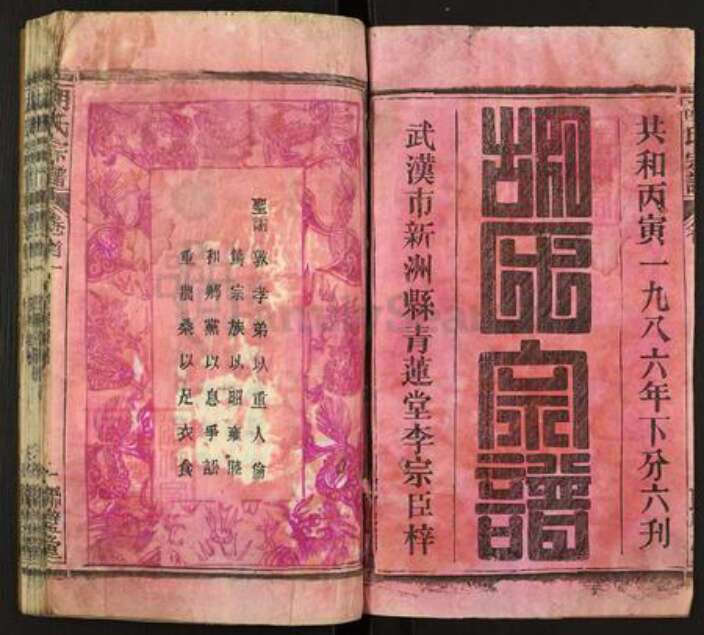 共和丙寅一九八六年下分六刋
胡氏宗譜
武漢市新洲縣青蓮堂李宗臣梓
聖諭
敦孝弟以重人倫
篤宗族以昭雍睦
和鄉黨以息爭訟
重農桑以足衣食
胡氏宗譜
卷首一